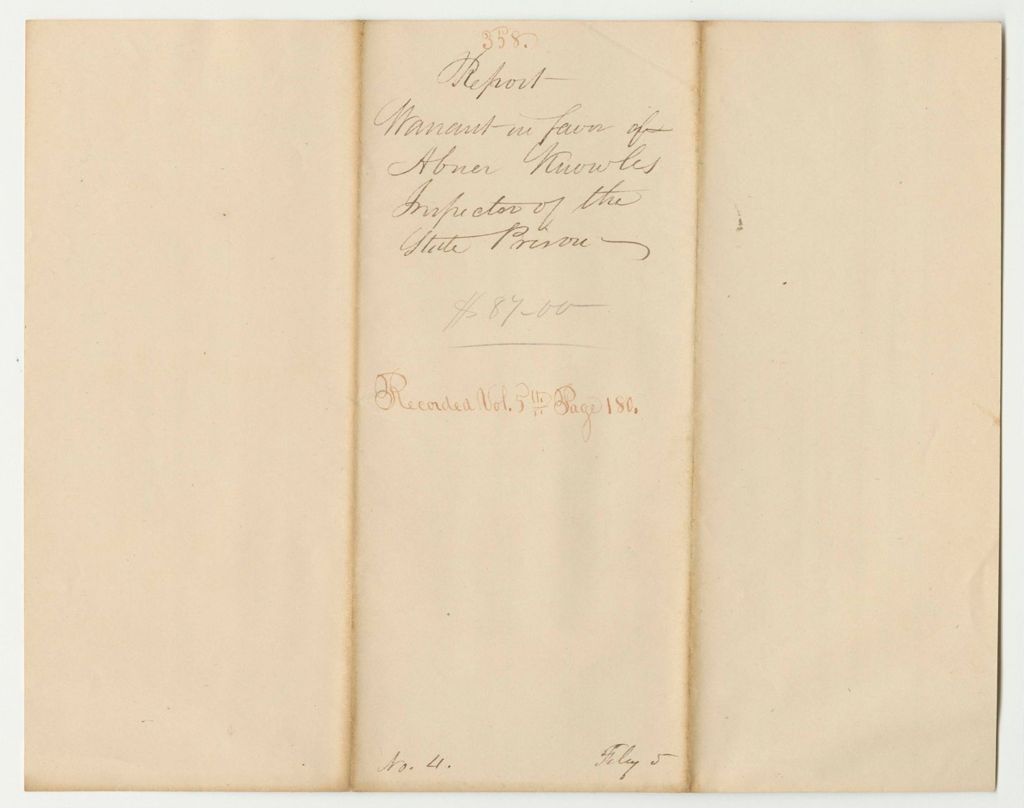 358.
Report
Warrant in favor of
Abner Knowles
Inspector of the
State Prison
$87.00
Recorded Vol. 5th Page 180.
No. 4.
Feby 5